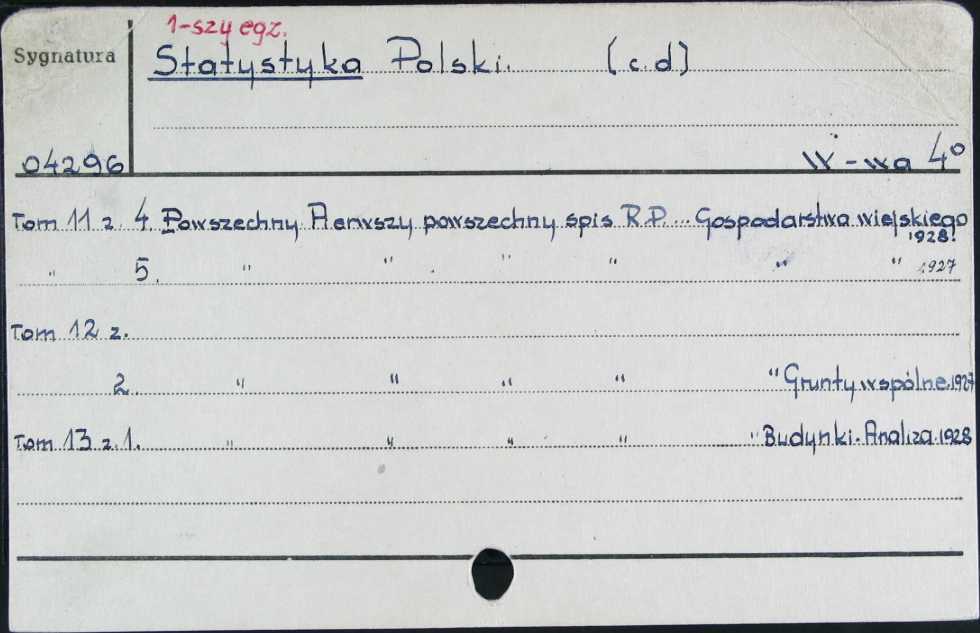 1-szy egz.
Sygnatura
Statystyka Polski. (c.d)
04296
W-wa 4°
Tom 11 z. 4. Powszechny Pierwszy powszechny spis R.P... Gospodarstwa wiejskiego
1928.
" 5. " " " " " " 1927
Tom 12 z.
2. " " " " " Grunty wspólne.1927
Tom 13 z.1. " " " " " Budynki. Analiza.1928